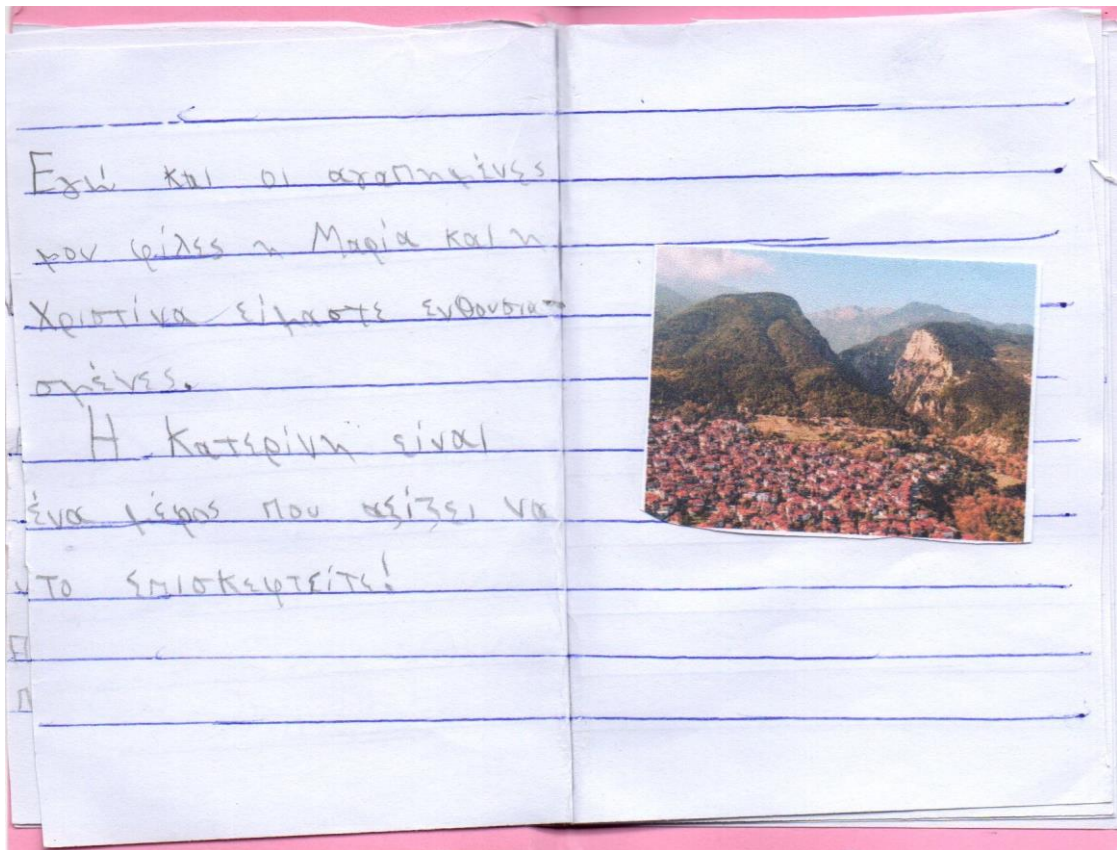 Εγώ και οι αγαπημένες
μου φίλες η Μαρία και η
Χριστίνα είμαστε ενθουσια-
σμένες.
Η Κατερίνη είναι
ένα μέρος που αξίζει να
το επισκεφτείτε!